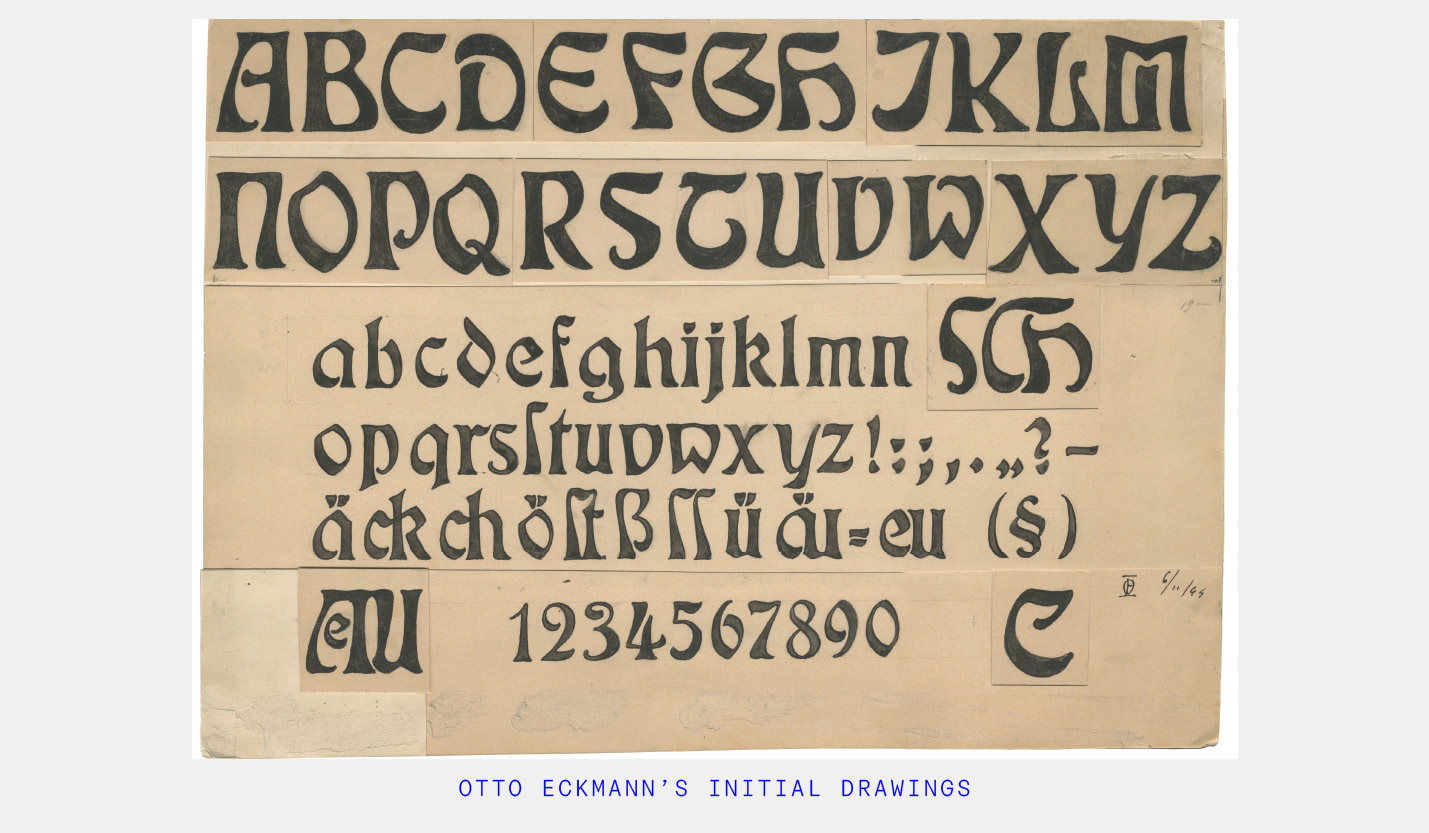 ABCDEFGHJKLM
NOPQRSTUVWXYZ
abcdefghijklmn SCH
opqrsſtuvwxyz!:;,.„?–
äckchöſtßſſüäu=eu (§)
1234567890 C
6/11/99
OTTO ECKMANN’S INITIAL DRAWINGS